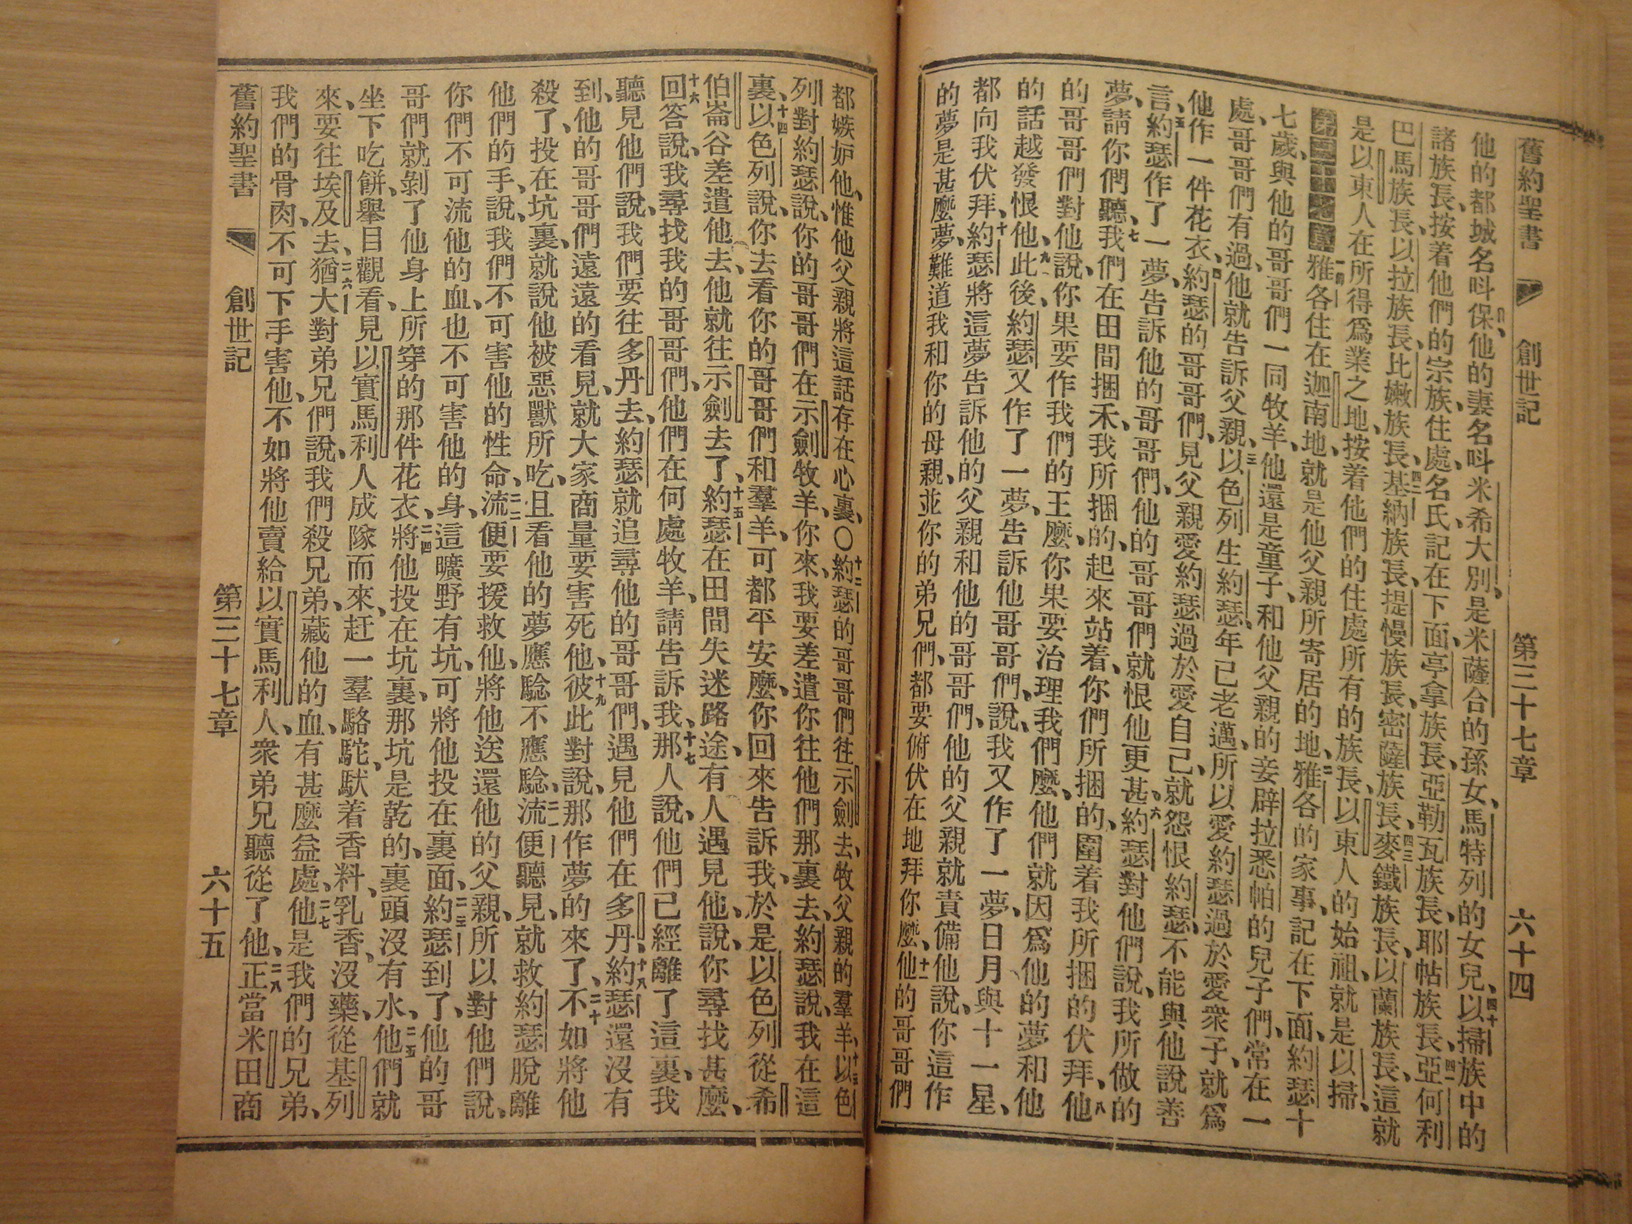 舊約聖書 創世記 第三十七章 六十四
他的都城名呌保、他的妻名呌米希大別、是米薩合的孫女、馬特列的女兒、四十以掃族中的
諸族長、按着他們的宗族住處名氏、記在下面、亭拿族長、亞勒瓦族長、耶帖族長、四一亞何利
巴馬族長、以拉族長、比嫩族長、四二基納族長、提慢族長、密薩族長、四三麥鐵族長、以蘭族長、這就
是以東人在所得爲業之地、按着他們的住處所有的族長、以東人的始祖、就是以掃、
雅各住在迦南地、就是他父親所寄居的地、二雅各的家事、記在下面、約瑟十
七歲、與他的哥哥們一同牧羊、他還是童子、和他父親的妾辟拉悉帕的兒子們、常在一
處、哥哥們有過、他就告訴父親、三以色列生約瑟年已老邁、所以愛約瑟過於愛衆子、就爲
他作一件花衣、四約瑟的哥哥們、見父親愛約瑟過於愛自己、就怨恨約瑟、不能與他說善
言、五約瑟作了一夢、告訴他的哥哥們、他的哥哥們就恨他更甚、六約瑟對他們說、我所做的
夢、請你們聽、七我們在田間捆禾、我所捆的、起來站着、你們所捆的、圍着我所捆的伏拜、八他
的哥哥們對他說、你果要作我們的王麼、你果要治理我們麼、他們就因爲他的夢和他
的話越發恨他、九此後、約瑟又作了一夢、告訴他哥哥們、說、我又作了一夢、日月與十一星、
都向我伏拜、十約瑟將這夢告訴他的父親和他的哥哥們、他的父親就責備他說、你這作
的夢是甚麼夢、難道我和你的母親、並你的弟兄們、都要俯伏在地拜你麼、十一他的哥哥們
都嫉妒他、惟他父親將這話存在心裏、〇十二約瑟的哥哥們往示劍去、牧父親的羣羊、十三以色
列對約瑟說、你的哥哥們在示劍牧羊、你來、我要差遣你往他們那裏去、約瑟說、我在這
裏、十四以色列說、你去看你的哥哥們和羣羊、可都平安麼、你回來告訴我、於是以色列從希
伯崙谷差遣他去、他就往示劍去了、十五約瑟在田間失迷路途、有人遇見他、說、你尋找甚麼、
十六回答說、我尋找我的哥哥們、他們在何處牧羊、請告訴我、十七那人說、他們已經離了這裏、我
聽見他們說、我們要往多丹去、約瑟就追尋他的哥哥們、遇見他們在多丹、十八約瑟還沒有
到、他的哥哥們遠遠的看見、就大家商量要害死他、十九彼此對說、那作夢的來了、二十不如將他
殺了、投在坑裏、就說他被惡獸所吃、且看他的夢應騐不應騐、二一流便聽見、就救約瑟脫離
他們的手、說、我們不可害他的性命、二二流便要援救他、將他送還他的父親、所以對他們說、
你們不可流他的血、也不可害他的身、這曠野有坑、可將他投在裏面、二三約瑟到了、他的哥
哥們就剝了他身上所穿的那件花衣、二四將他投在坑裏、那坑是乾的、裏頭沒有水、二五他們就
坐下吃餅、舉目觀看、見以實馬利人成隊而來、赶一羣駱駝、馱着香料、乳香、沒藥、從基列
來、要往埃及去、二六猶大對弟兄們說、我們殺兄弟、藏他的血、有甚麼益處、二七他是我們的兄弟、
我們的骨肉、不可下手害他、不如將他賣給以實馬利人、衆弟兄聽從了他、二八正當米田商
舊約聖書 創世記 第三十七章 六十五